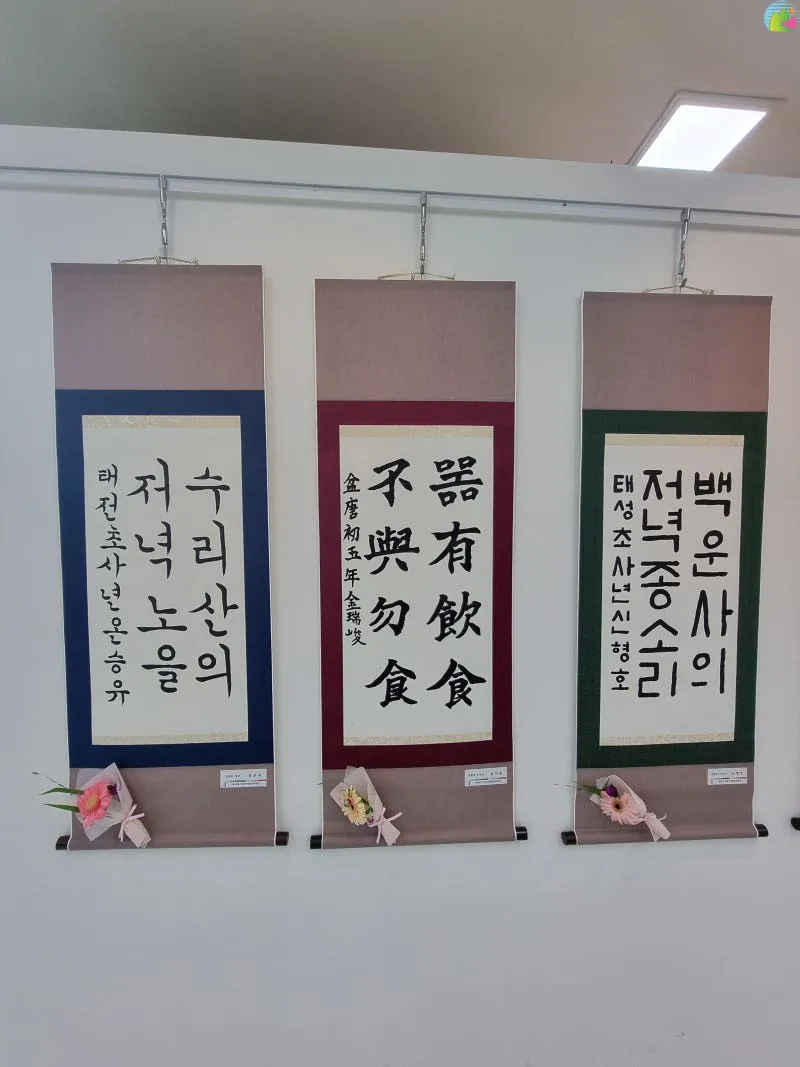 수리산의
저녁노을
태전초사년온승유
器有飲食
不與勿食
盆唐初五年金瑞峻
백운사의
저녁종소리
태성초사년신형호